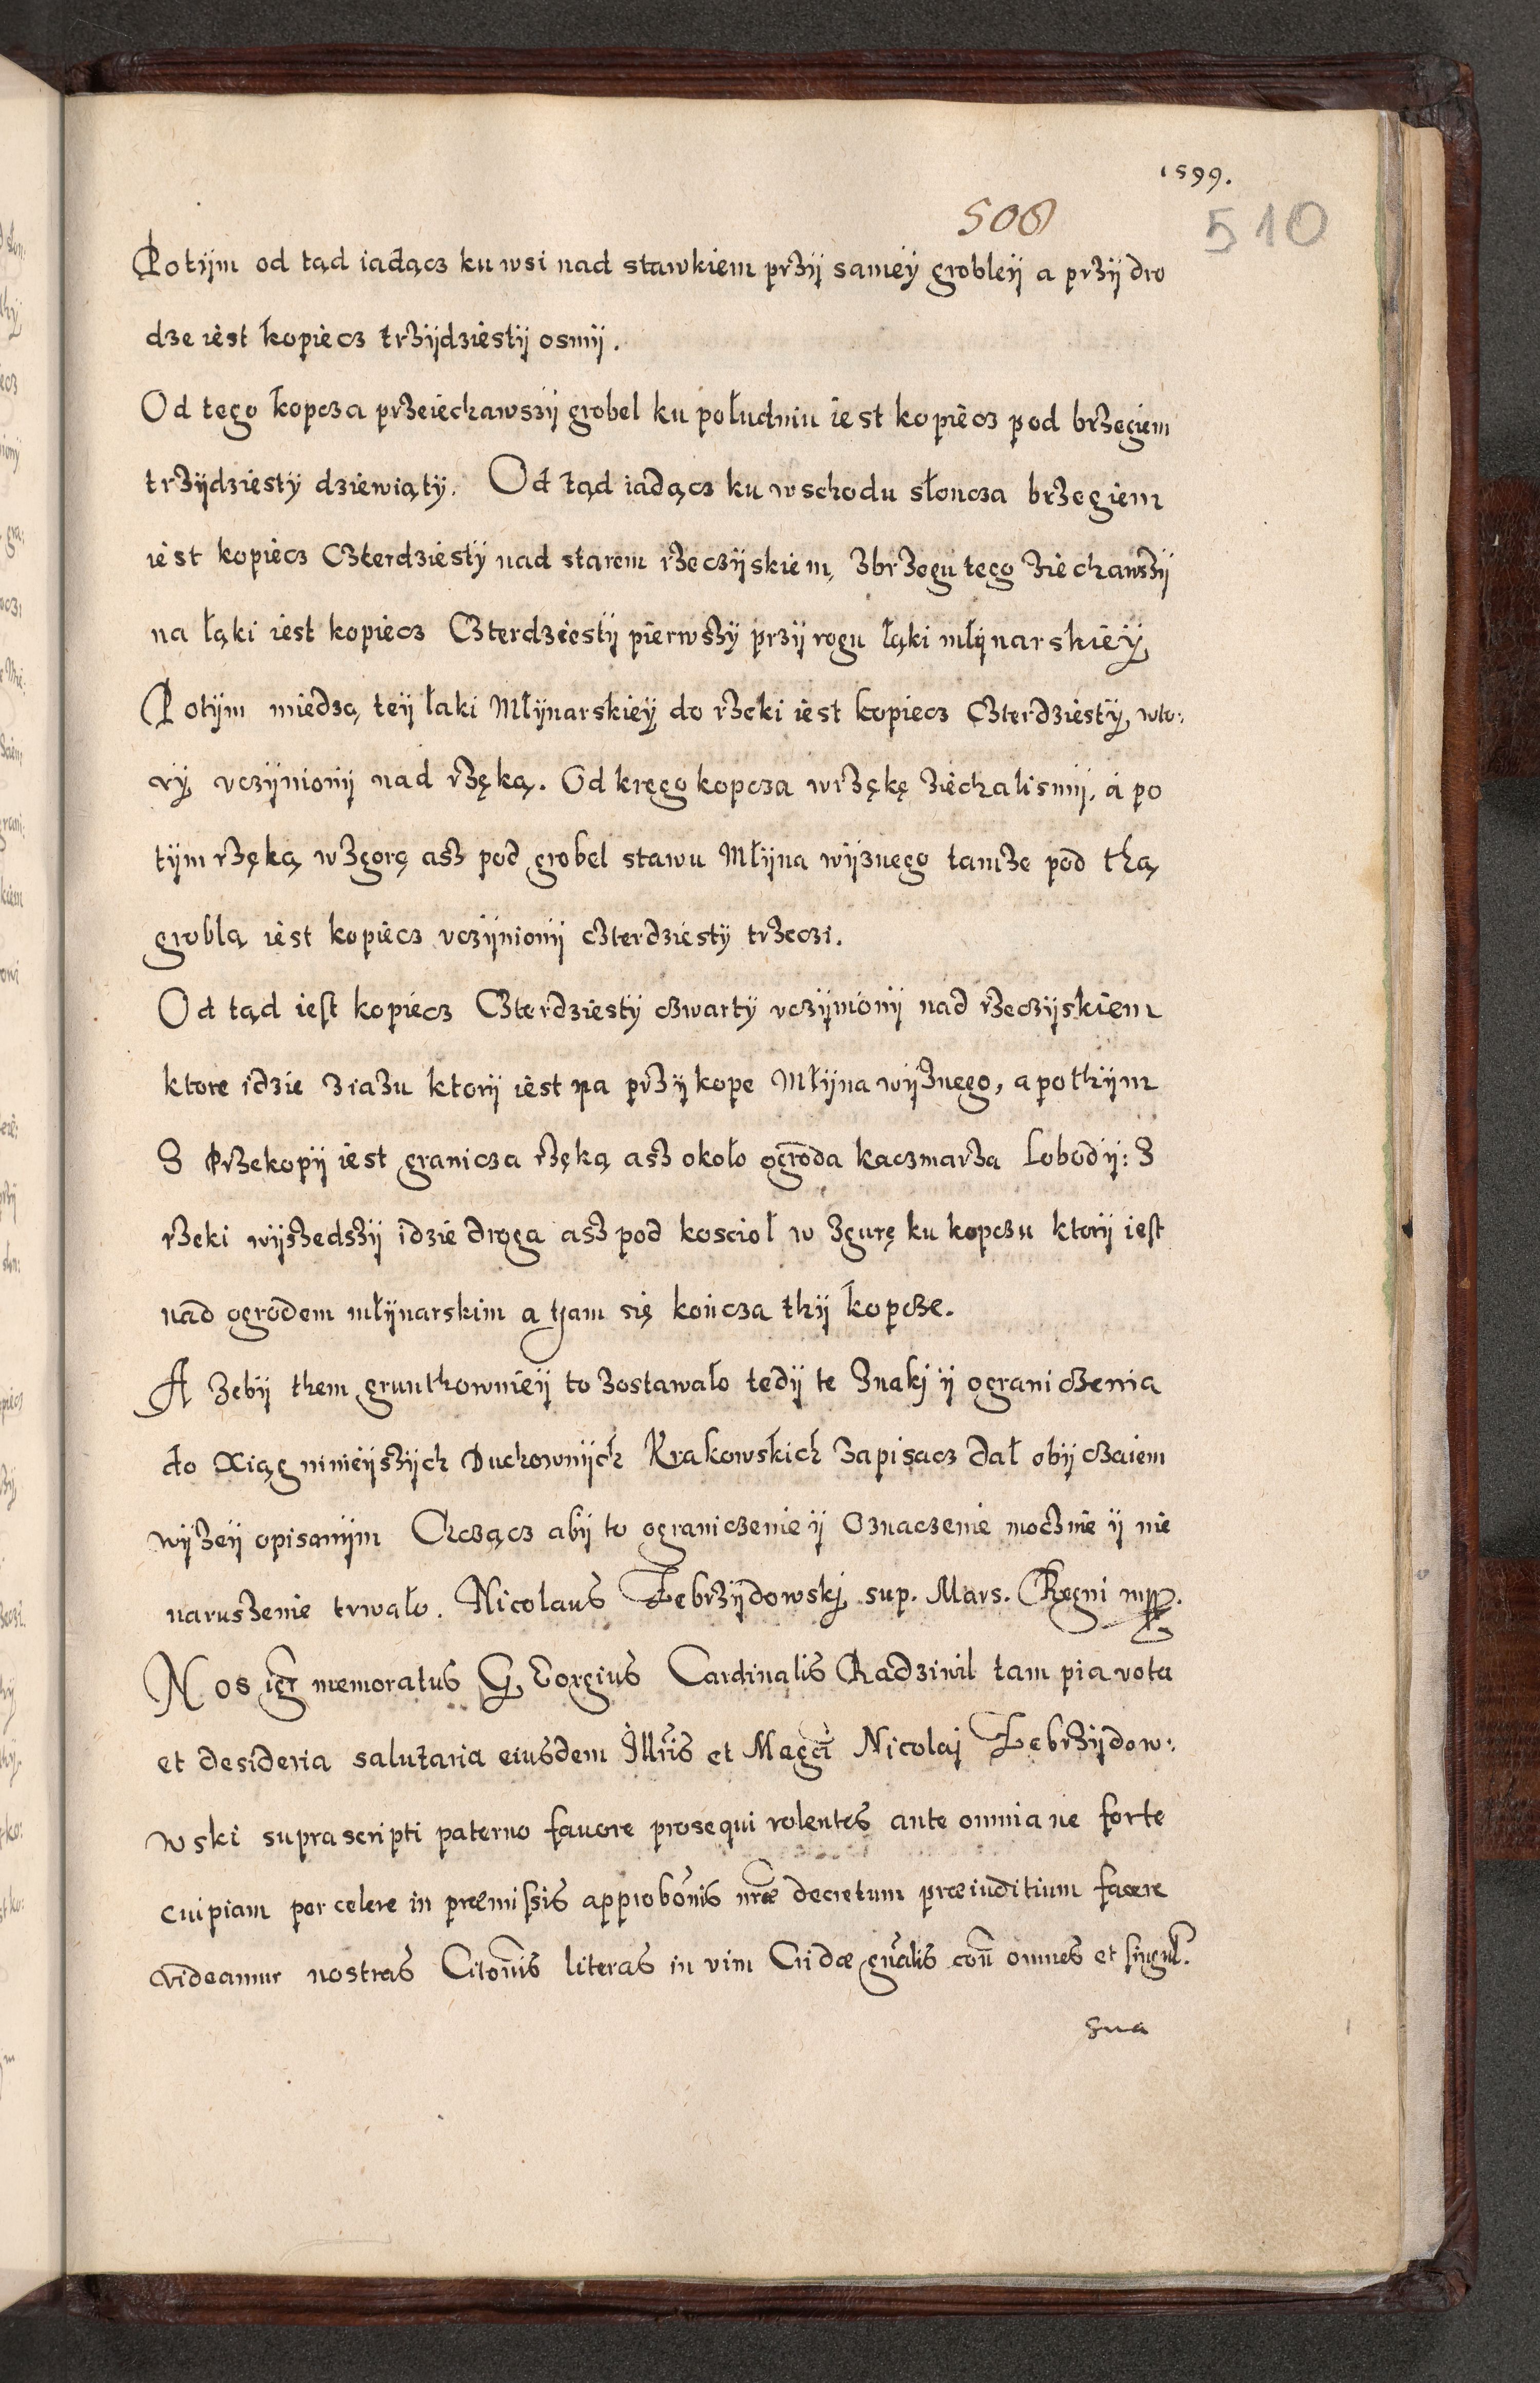 1599.
508
510
Potijm od tąd iadącz ku wsi nad stawkiem przij samey grobleij a przij dro
dze iest kopiecz trzijdziestij osmij.
Od tego kopcza przeiechawszij grobel ku południu iest kopiecz pod brzegiem
trzijdziesty dziewiąty. Od tąd iadącz ku wschodu słoncza brzegiem
iest kopiecz Czterdziesty nad starem rzeczijskiem, zbrzegu tego ziechawszij
na łąki iest kopiecz Czterdziestij pierwszy przij rogu łąki młijnarskiey
Potijm miedzą teij łaki Młijnarskiey do rzeki iest kopiecz Czterdziesty wto:
ry vczijnionij nad rzęką. Od kregο kopcza wrzękę ziechalismij, a po
tijm rzęką wzgorę asz pod grobel stawu Młijna wijznego tamze pod thą
groblą iest kopiecz vczijnionij czterdziesty trzeczi.
Od tąd iest kopiecz Czterdziesty czwarty vczijnionij nad rzeczijskiem
ktore idzie ziazu ktorij iest na przijkope Młijna wijznego, a pothijm
Z Przekopij iest granicza rzęką asz około ogroda kaczmarza Lobodij: Z
rzeki wijszedszij idzie droga asz pod kosciol w zgurę ku kopczu ktorij iest
nad ogrodem młijnarskim a tam się kończa thij kopcze.
A zebij them grunthownieij to zostawało tedij te Znakj ij ograniczenia
do Xiąg ninieijszijch Duchownijch Krakowskich zapisacz dał obijczaiem
wijzeij opisanijm Chczącz abij to ograniczenie ij Oznaczenie mocznie ij nie
naruszenie trwało. Nicolaus Zebrzijdowskj sup. Mars. Regni mpp.
Nos igr memoratus Georgius Cardinalis Radziwil tam pia vota
et desideria salutaria eiusdem Illris et Magci Nicolaj Zebrzijdow:
wski suprascripti paterno fauore prosequi volentes ante omnia ne forte
cuipiam per celere in præmissis approbonis nræ decretum præiuditium facere
videamur nostras Citonis literas in vim Cridæ gnalis con omnes et singul.
sua